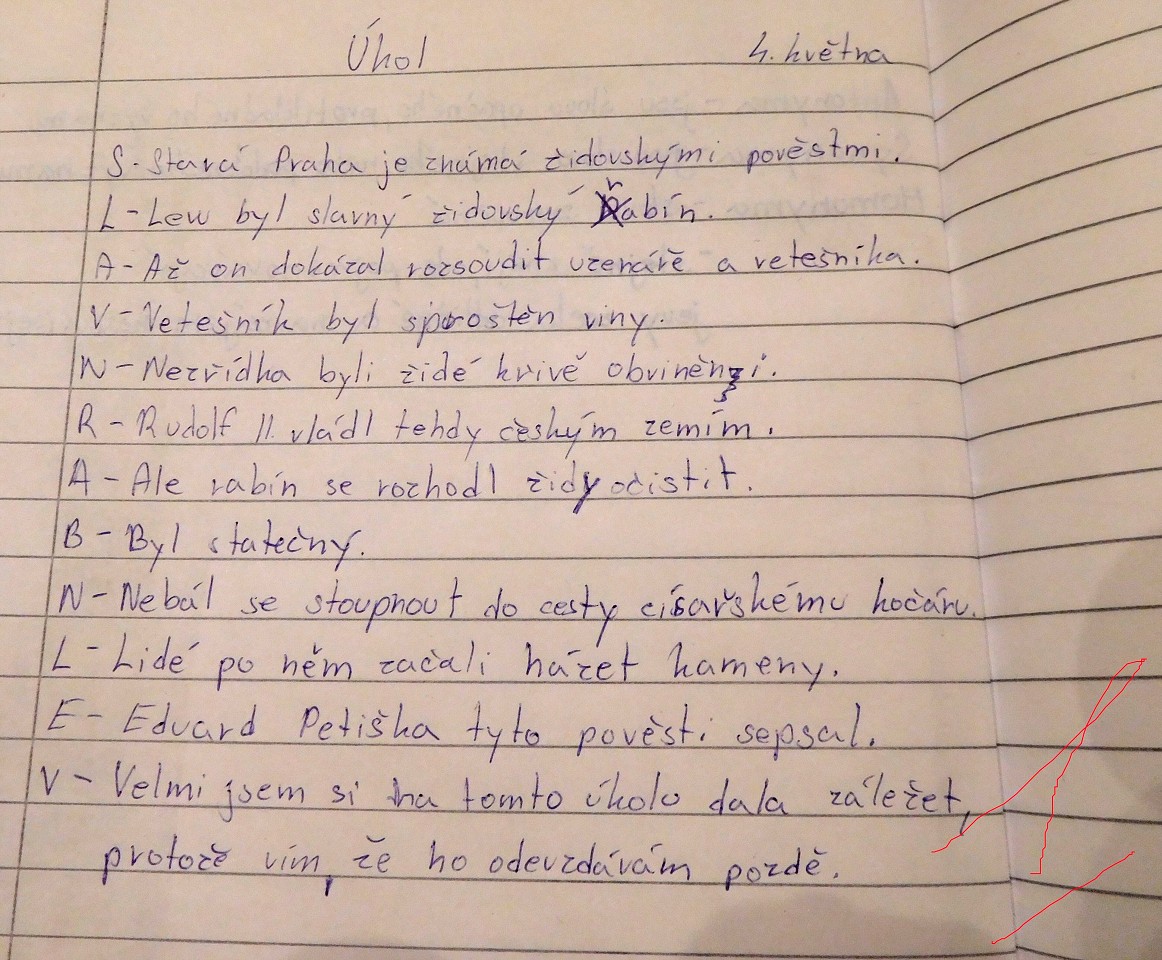 Úkol 4. května
S - Stará Praha je známá židovskými pověstmi.
L - Lew byl slavný židovský rabín.
A - Až on dokázal rozsoudit uzenáře a vetešníka.
V - Vetešník byl sproštěn viny.
N - Nezřídka byli židé křivě obviněni.
R - Rudolf II. vládl tehdy českým zemím.
A - Ale rabín se rozhodl židy očistit.
B - Byl statečný.
N - Nebál se stoupnout do cesty císařskému kočáru.
L - Lidé po něm začali házet kameny.
E - Eduard Petiška tyto pověsti sepsal.
V - Velmi jsem si na tomto úkolu dala záležet,
protože vím, že ho odevzdávám pozdě.